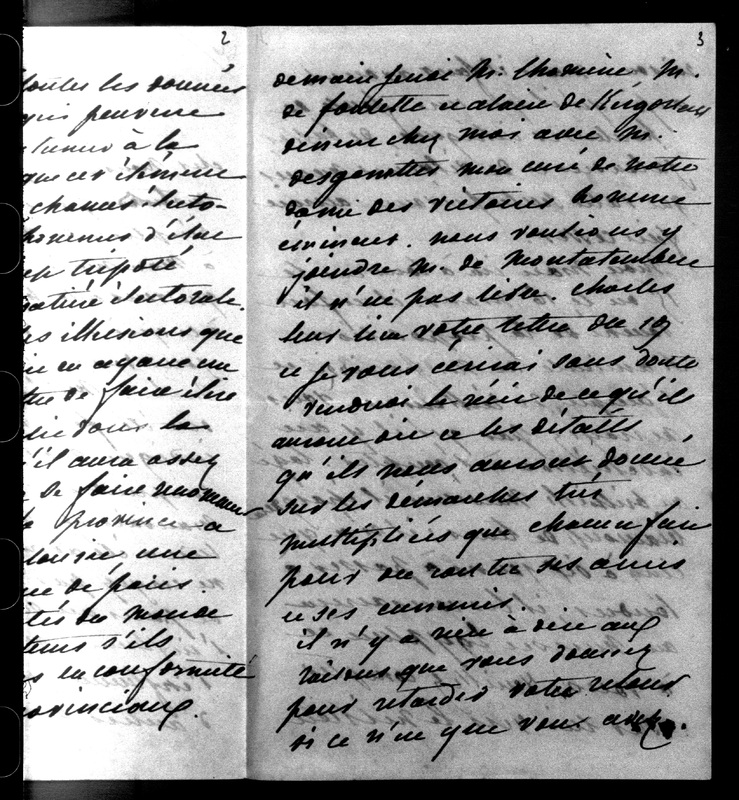 2
toutes les données
qui peuvent
à la
que cet élément
chances électo-
hommes d'état
tripoté
matière électorale.
les illusions que
en ayant un
de faire élire
dans la
qu'il aura assez
de se faire renommer
la province a
une
de paris.
du monde
s'ils
en conformité
provinciaux.
3
demain j'aurai M. Lhomine M.
de et alain de Kergorlay
diner chez moi avec M.
desgenettes mon curé de notre
dame des victoires homme
éminent. nous voulions y
joindre M. de Montalembert
il n'est pas libre. Charles
leur lira votre lettre du 19
et je vous enverrai sans doute
vendredi le récit de ce qu'ils
auront dit et les détails
qu'ils nous auront donné
sur les démarches très
multipliées que chacun fait
pour ou contre ses amis
et ses ennemis.
il n'y a rien à dire aux
raisons que vous donnez
pour retarder votre retour
si ce n'est que vous avez